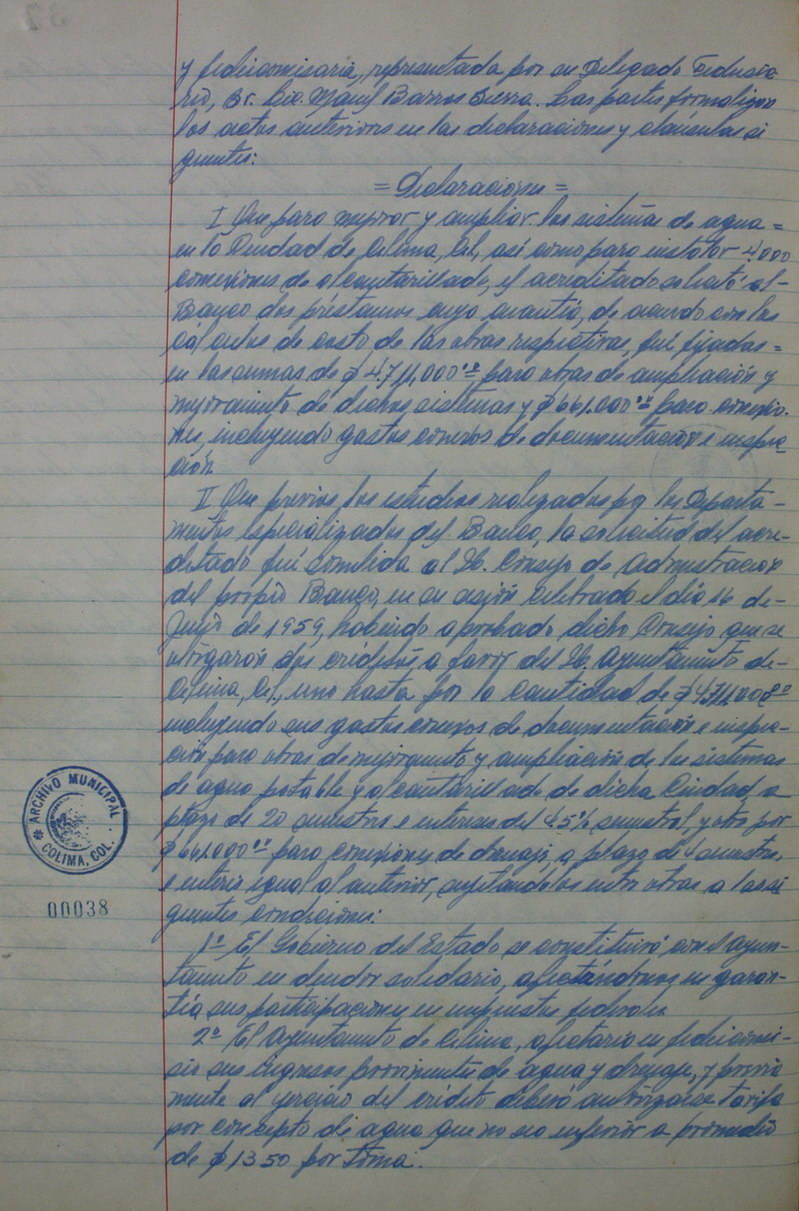 y fideicomisaria, representada por su Delegado Fiducia
rio, Sr. Lic. Manuel Barros Sierra. Las partes formalizan
los actos anteriores en las declaraciones y cláusulas si
guientes:
= Declaraciones =
I Que para mejorar y ampliar los sistemas de agua =
en la Ciudad de Colima, Col., así como para instalar 4.000
conexiones de alcantarillado, el acreditado solicitó al-
Banco dos préstamos cuya cuantía, de acuerdo con los
cálculos de costo de las obras respectivas, fué fijada =
en las sumas de $ 4.711,000.00 para obras de ampliación y
mejoramiento de dichos sistemas y $ 661.000.00 para conexio-
nes, incluyendo gastos conexos de documentación e inspec
ción.
II Que previos los estudios realizados por los Departa-
mentos especializados del Banco, la solicitud del acre-
ditado fué sometida al H. Consejo de Administracion
del propio Banco, en su sesión celebrada el día 16 de-
de 1959, habiendo aprobado dicho Consejo que se
otorgaran dos créditos, a favor del H. Ayuntamiento de-
Colima, Col., uno hasta por la cantidad de $ 4.711,000.00
incluyendo sus gastos conexos de documentación e inspec-
ción para obras de mejoramiento y ampliación de los sistemas
de agua potable y alcantarillado de dicha Ciudad a
plazo de 20 semestres e intereses del 4.5% semestral, y otro por
$ 661.000.00 para conexiones de drenaje, a plazo de semestres,
e interés igual al anterior, sujetándolos entre otras a las si
guientes condiciones:
1ª El Gobierno del Estado se constituirá con el Ayun-
tamiento en deudor solidario, afectándonos en garan-
tía sus participaciones en impuestos federales.
2ª El Ayuntamiento de Colima, afectaría en fideicomi-
so sus ingresos provenientes de agua y drenaje, y previa
mente al ejercicio del crédito deberá autorizarse tarifa
por concepto de agua que no sea inferior a promedio
de $ 13.50 por toma.
ARCHIVO MUNICIPAL
COLIMA, COL.
00038